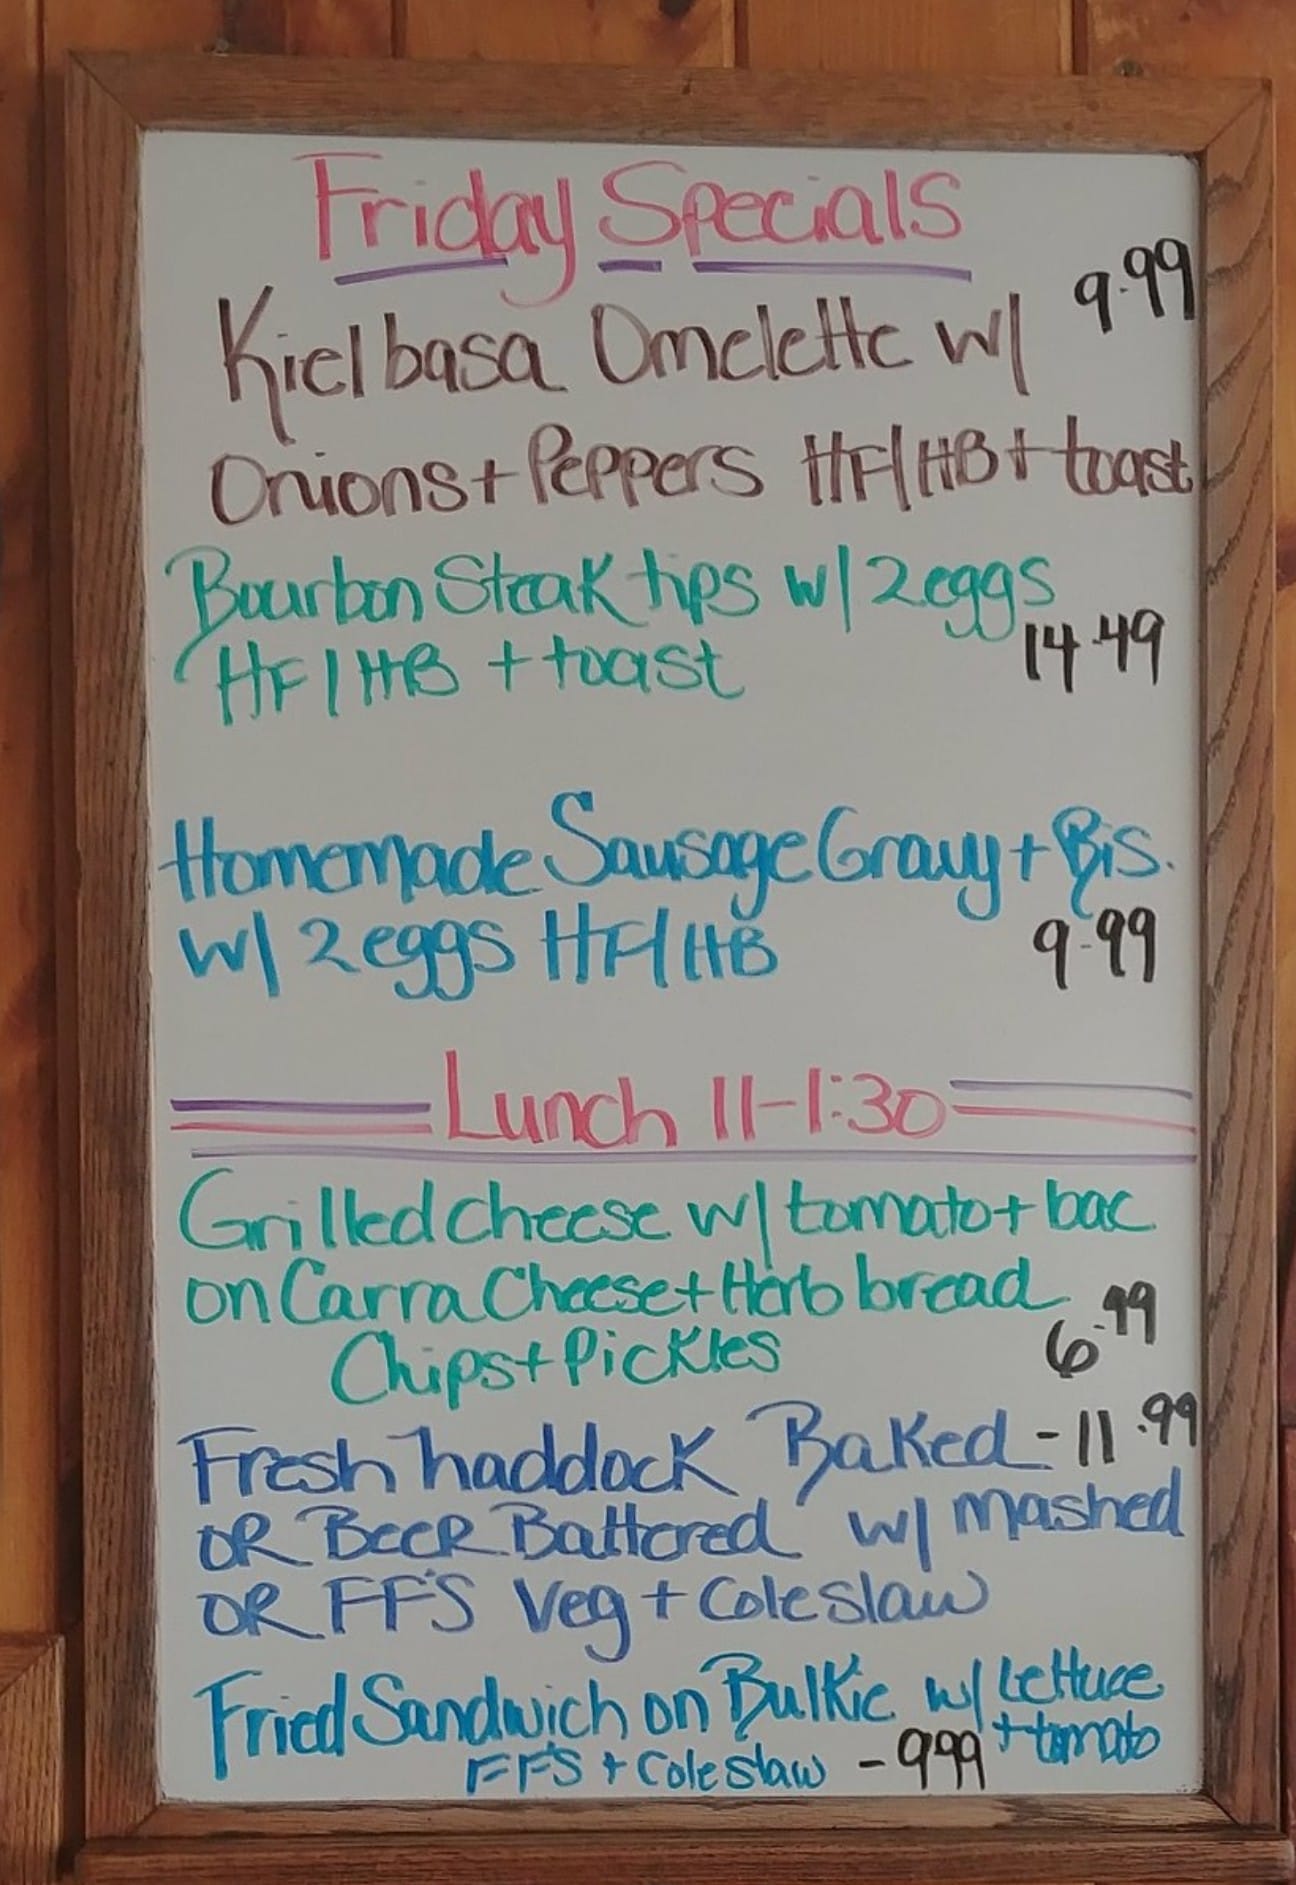 Friday Specials
9.99
Kielbasa Omelette w/
Onions + Peppers HF/HB + toast
Bourbon Steak tips w/ 2 eggs
HF/HB + toast 14.49
Homemade Sausage Gravy + Bis.
w/ 2 eggs HF/HB 9.99
Lunch 11-1:30
Grilled cheese w/ tomato + bac
on Carra Cheese + Herb bread
Chips + Pickles 6.99
Fresh haddock Baked - 11.99
OR Beer Battered w/ mashed
OR FF'S Veg + Coleslaw
Fried Sandwich on Bulkie w/ Lettuce
+ tomato
FF'S + Coleslaw - 9.99